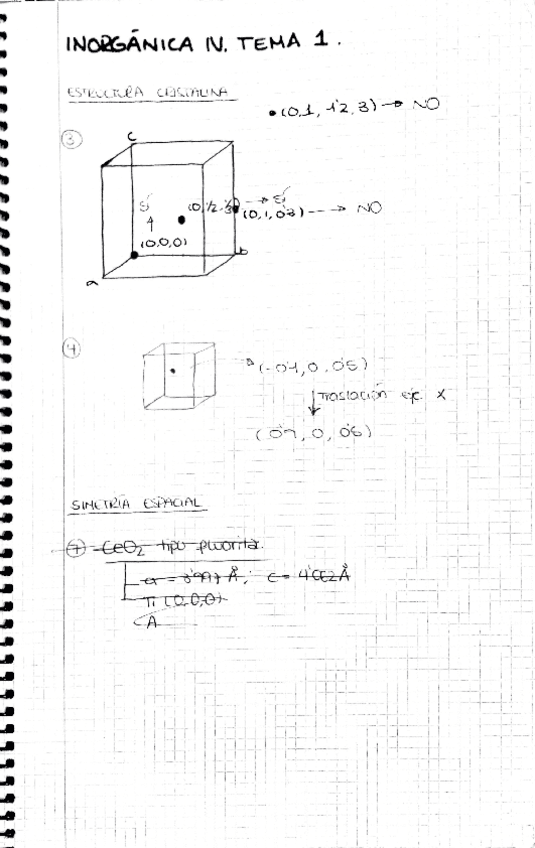 INORGÁNICA IV. TEMA 1.
ESTRUCTURA CRISTALINA
• (0,1, 1'2, 3) → NO
③
c
SÍ (0,1/2,1/3) → SÍ
(0,1,0'3) --→ NO
(0,0,0)
a b
④
(-0'1, 0, 0'5)
↓ Traslación eje x
SIMETRÍA ESPACIAL
⑦ CeO₂ tipo fluorita.
a = 3'997 Å; c = 4'002 Å
Ti (0,0,0)
A